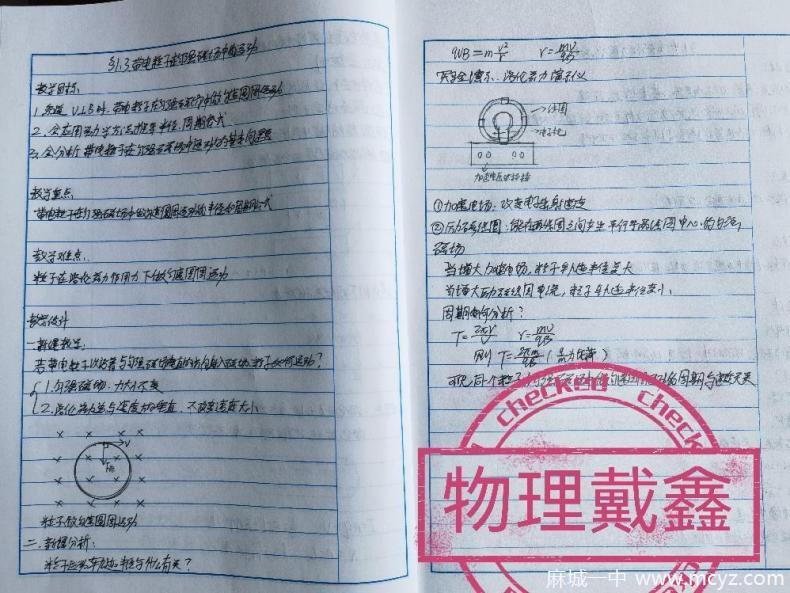 §1.3 带电粒子在匀强磁场中的运动
教学目标:
1. 知道 v⊥B时,带电粒子在匀强磁场中做匀速圆周运动
2. 会应用动力学方法推导半径、周期公式
3. 会分析带电粒子在匀强磁场中运动的基本问题
教学重点
带电粒子在匀强磁场中做匀速圆周运动的半径和周期公式
教学难点:
粒子在洛伦兹力作用下做匀速圆周运动
教学设计
一. 新课教学:
若带电粒子以初速与匀强磁场垂直的方向射入磁场,粒子如何运动?
1. 匀强磁场,力大小不变
2. 洛伦兹力总与速度方向垂直,不改变速度大小
× × × ×
v
F洛
粒子做匀速圆周运动
二. 数据分析:
qvB = m v²/r r = mv/qB
实验演示:洛伦兹力演示仪
线圈
电子枪
加速电压选择挡
①加速电场:改变电子束射出速度
②励磁线圈:能在两线圈之间产生平行于两线圈中心的匀强
磁场
当增大加速电场,粒子射入速半径变大
当增大励磁线圈电流,粒子射入速半径变小
周期如何分析?
T = 2πr/v r = mv/qB
则 T = 2πm/qB
可见,同一个粒子
周期与速度无关
checked checked
物理戴鑫
checked
麻城一中 www.mcyz.com